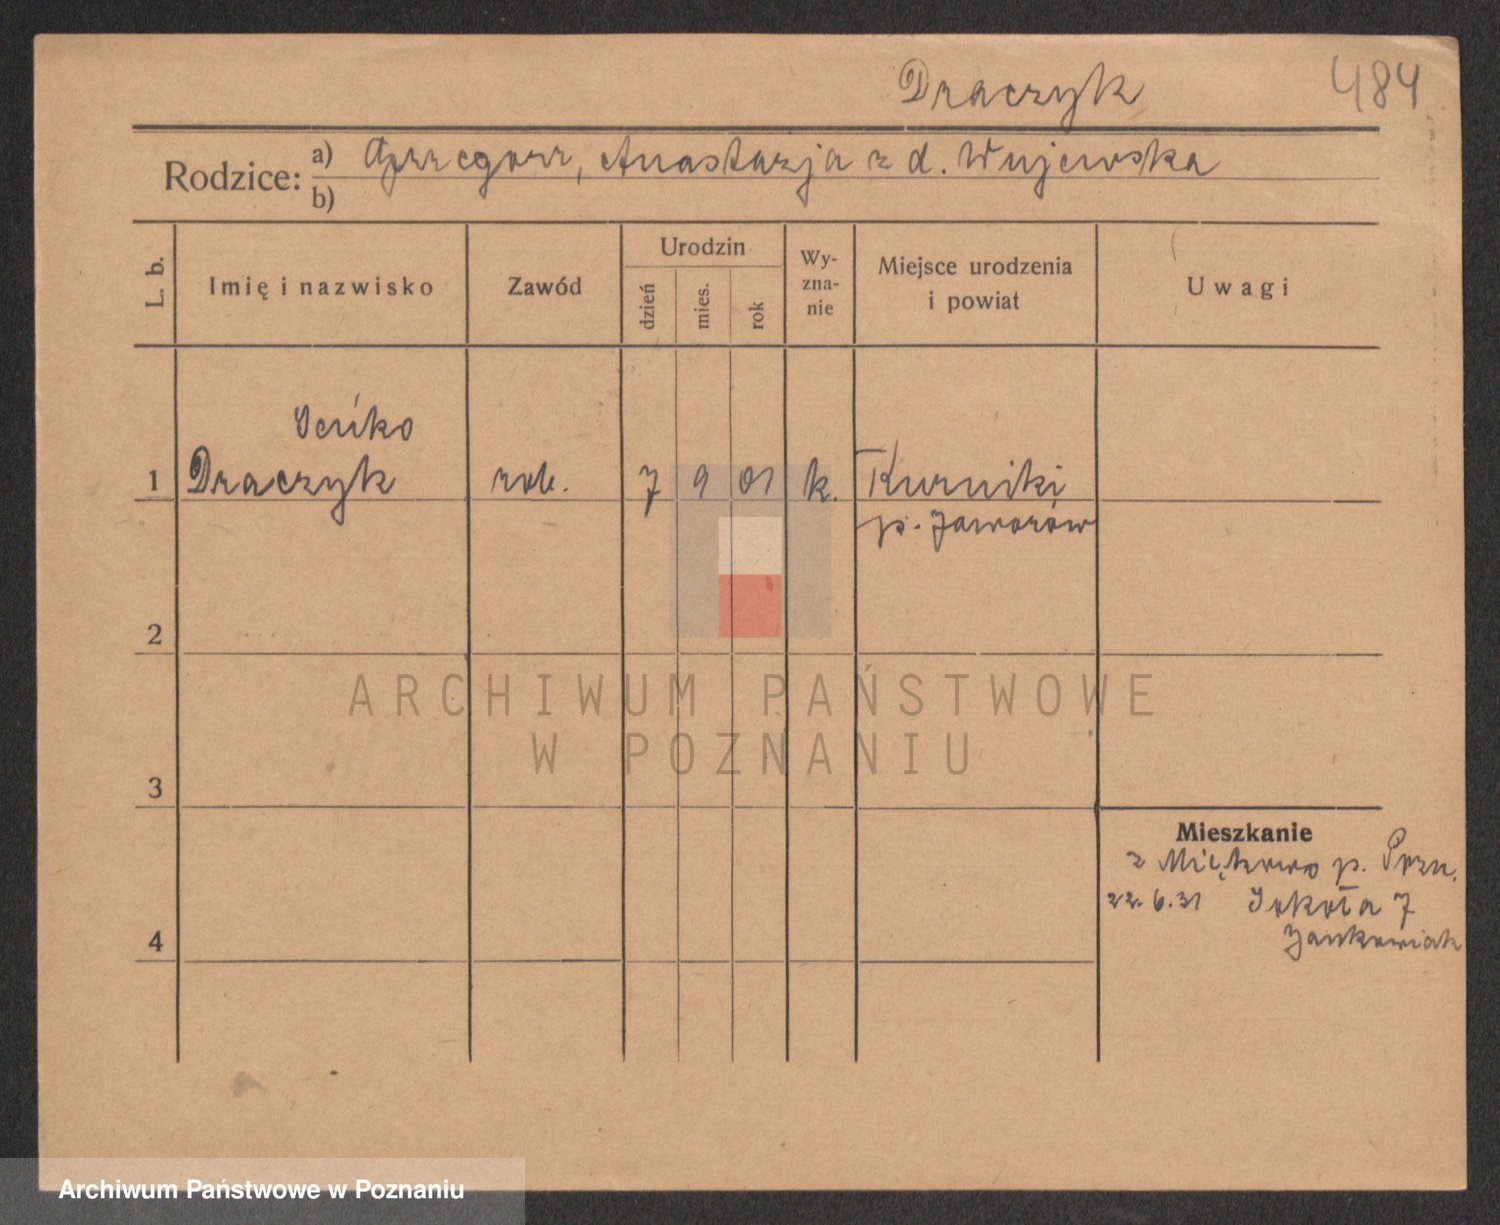 Draczyk 484
Rodzice: a) Grzegorz, Anastazja z d. Wujewska
b)
L. b. Imię i nazwisko Zawód Urodzin dzień mies. rok Wy-zna-nie Miejsce urodzenia i powiat Uwagi
1 Draczyk rob. 7 9 01 k. Kurniki
p. Jaworów
2
ARCHIWUM PAŃSTWOWE
W POZNANIU
3
Mieszkanie
z p. Pozn.
22.6.31 Sokoła 7
Jankowiak
4
Archiwum Państwowe w Poznaniu